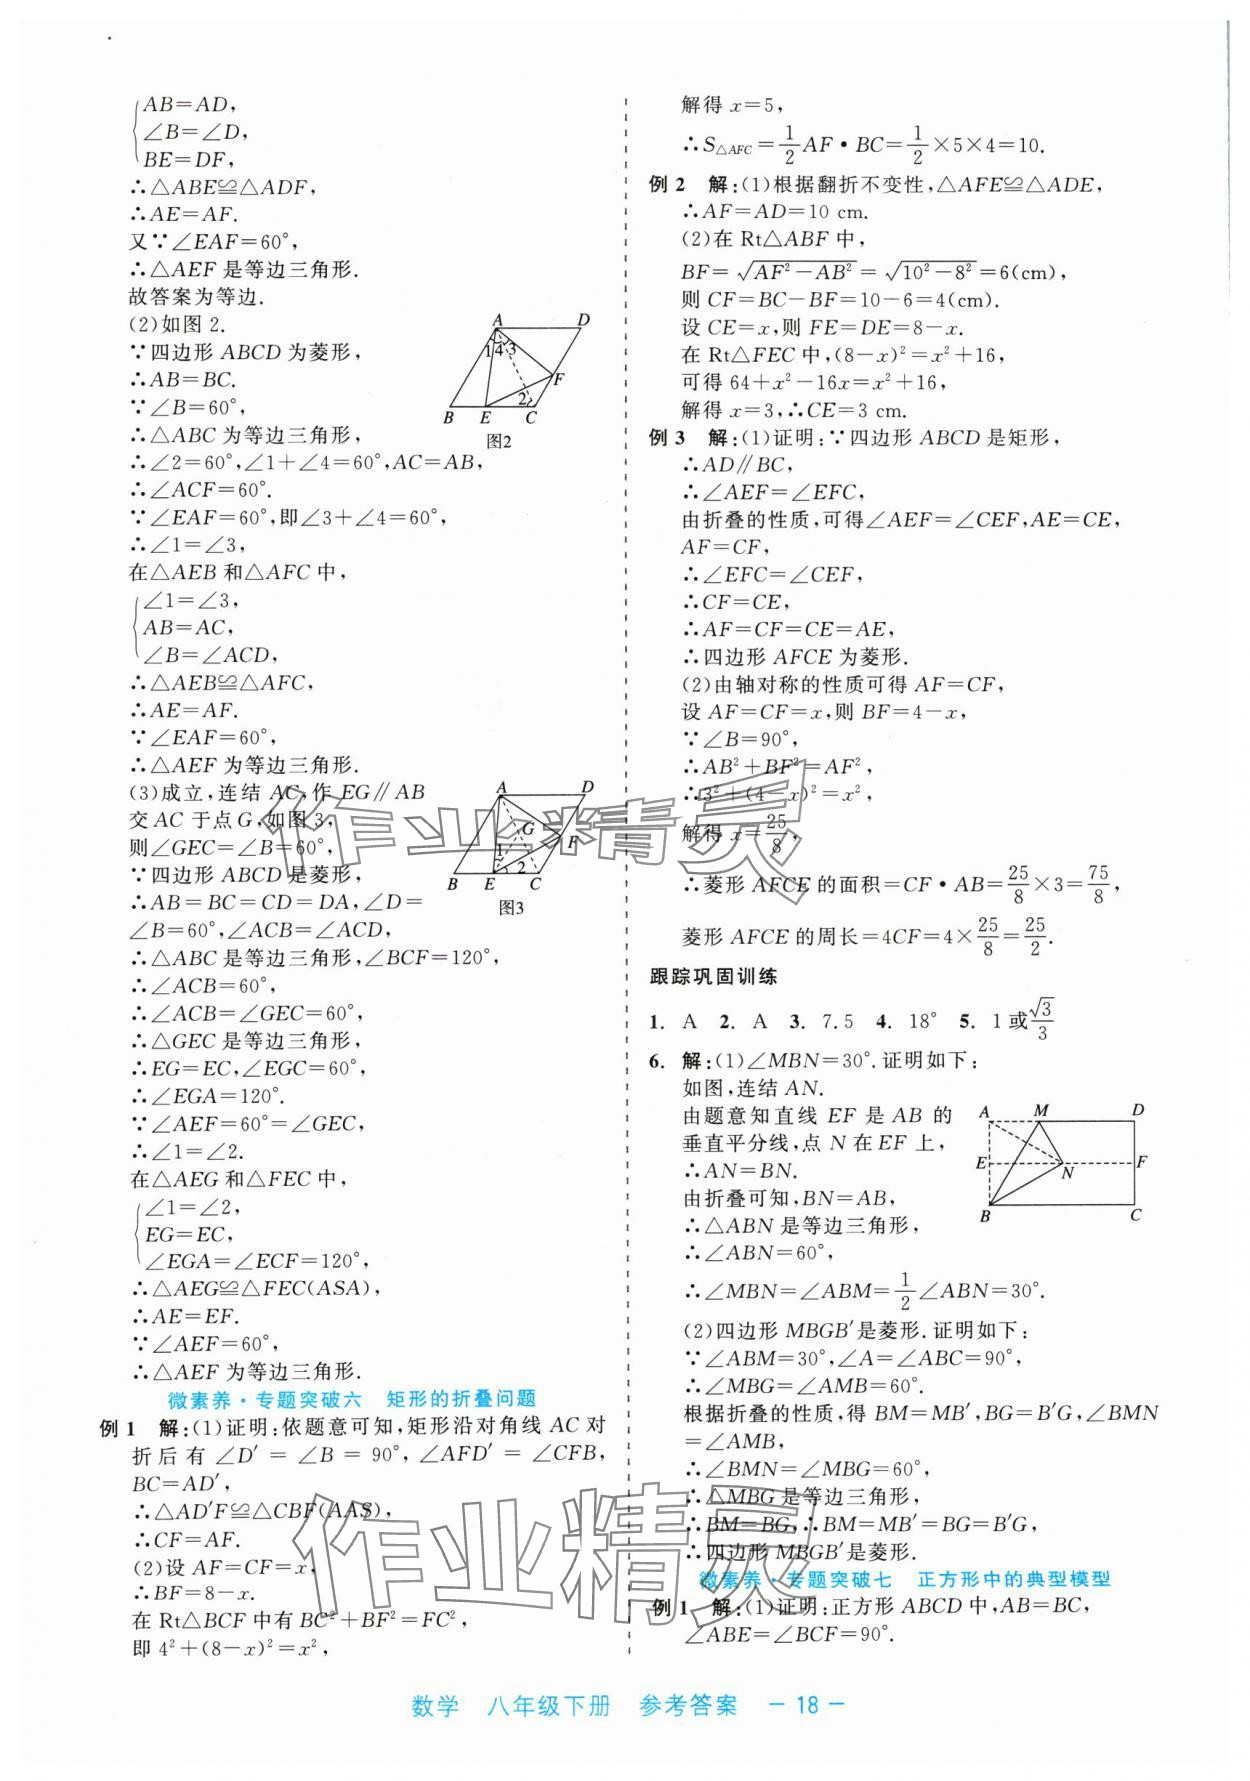 AB=AD,
∠B=∠D,
BE=DF,
∴△ABE≌△ADF,
∴AE=AF.
又∵∠EAF=60°,
∴△AEF是等边三角形.
故答案为等边.
(2)如图2.
∵四边形ABCD为菱形,
∴AB=BC.
∵∠B=60°,
∴△ABC为等边三角形,
∴∠2=60°,∠1+∠4=60°,AC=AB,
∴∠ACF=60°.
∵∠EAF=60°,即∠3+∠4=60°,
∴∠1=∠3,
在△AEB和△AFC中,
∠1=∠3,
AB=AC,
∠B=∠ACD,
∴△AEB≌△AFC,
∴AE=AF.
∵∠EAF=60°,
∴△AEF为等边三角形.
A D
1 4 3
F
2
B E C
图2
(3)成立,连结AC,作EG∥AB
交AC于点G,如图3,
则∠GEC=∠B=60°,
∵四边形ABCD是菱形,
∴AB=BC=CD=DA,∠D=
∠B=60°,∠ACB=∠ACD,
∴△ABC是等边三角形,∠BCF=120°,
∴∠ACB=60°,
∴∠ACB=∠GEC=60°,
∴△GEC是等边三角形,
∴EG=EC,∠EGC=60°,
∴∠EGA=120°.
∵∠AEF=60°=∠GEC,
∴∠1=∠2.
在△AEG和△FEC中,
∠1=∠2,
EG=EC,
∠EGA=∠ECF=120°,
∴△AEG≌△FEC(ASA),
∴AE=EF.
∵∠AEF=60°,
∴△AEF为等边三角形.
A D
G
F
1
2
B E C
图3
微素养·专题突破六 矩形的折叠问题
例1 解:(1)证明:依题意可知,矩形沿对角线AC对
折后有∠D′=∠B=90°,∠AFD′=∠CFB,
BC=AD′,
∴△AD′F≌△CBF(AAS),
∴CF=AF.
(2)设AF=CF=x,
∴BF=8-x.
在Rt△BCF中有BC²+BF²=FC²,
即4²+(8-x)²=x²,
解得x=5,
∴S△AFC=1/2AF·BC=1/2×5×4=10.
例2 解:(1)根据翻折不变性,△AFE≌△ADE,
∴AF=AD=10 cm.
(2)在Rt△ABF中,
BF=√(AF²-AB²)=√(10²-8²)=6(cm),
则CF=BC-BF=10-6=4(cm).
设CE=x,则FE=DE=8-x.
在Rt△FEC中,(8-x)²=x²+16,
可得64+x²-16x=x²+16,
解得x=3,∴CE=3 cm.
例3 解:(1)证明:∵四边形ABCD是矩形,
∴AD∥BC,
∴∠AEF=∠EFC,
由折叠的性质,可得∠AEF=∠CEF,AE=CE,
AF=CF,
∴∠EFC=∠CEF,
∴CF=CE,
∴AF=CF=CE=AE,
∴四边形AFCE为菱形.
(2)由轴对称的性质可得AF=CF,
设AF=CF=x,则BF=4-x,
∵∠B=90°,
∴AB²+BF²=AF²,
∴3²+(4-x)²=x²,
解得x=25/8,
∴菱形AFCE的面积=CF·AB=25/8×3=75/8,
菱形AFCE的周长=4CF=4×25/8=25/2.
跟踪巩固训练
1. A 2. A 3. 7.5 4. 18° 5. 1或√3/3
6. 解:(1)∠MBN=30°.证明如下:
如图,连结AN.
由题意知直线EF是AB的
垂直平分线,点N在EF上,
∴AN=BN.
由折叠可知,BN=AB,
∴△ABN是等边三角形,
∴∠ABN=60°,
∴∠MBN=∠ABM=1/2∠ABN=30°.
A M D
E N F
B C
(2)四边形MBGB′是菱形.证明如下:
∵∠ABM=30°,∠A=∠ABC=90°,
∴∠MBG=∠AMB=60°,
根据折叠的性质,得BM=MB′,BG=B′G,∠BMN
=∠AMB,
∴∠BMN=∠MBG=60°,
∴△MBG是等边三角形,
∴BM=BG,∴BM=MB′=BG=B′G,
∴四边形MBGB′是菱形.
微素养·专题突破七 正方形中的典型模型
例1 解:(1)证明:正方形ABCD中,AB=BC,
∠ABE=∠BCF=90°.
作业精灵
作业精灵
数学 八年级下册 参考答案 -18-